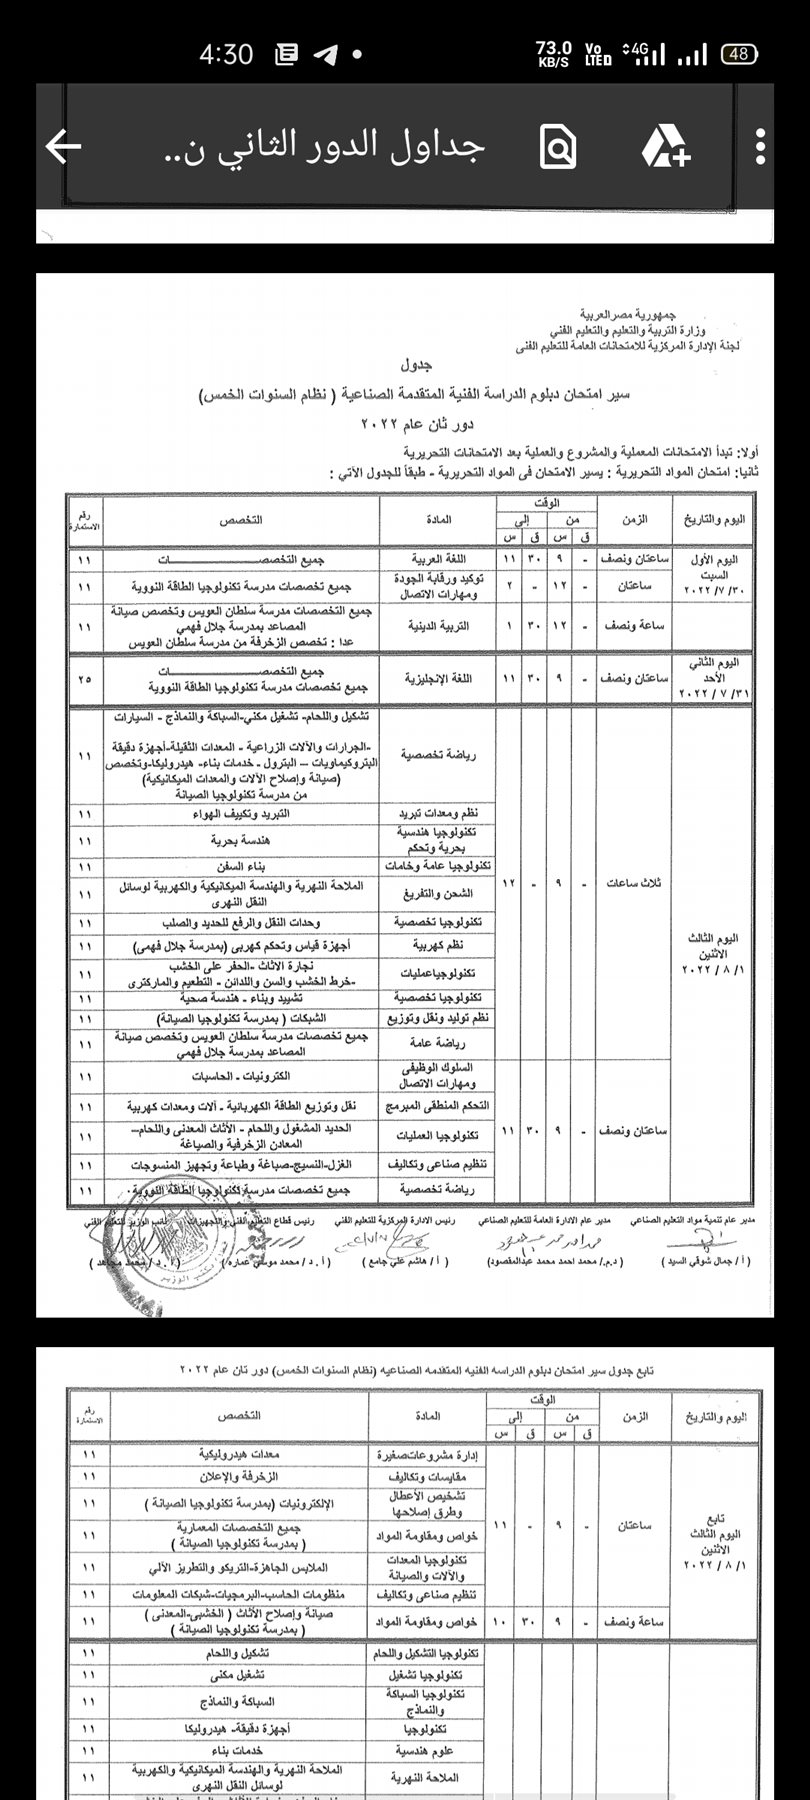 4:30
73.0 KB/S
Vo LTED
4G
48
جداول الدور الثاني ن..
جمهورية مصر العربية
وزارة التربية والتعليم والتعليم الفني
لجنة الإدارة المركزية للامتحانات العامة للتعليم الفنى
جدول
سير امتحان دبلوم الدراسة الفنية المتقدمة الصناعية ( نظام السنوات الخمس)
دور ثان عام ٢٠٢٢
أولا: تبدأ الامتحانات المعملية والمشروع والعملية بعد الامتحانات التحريرية
ثانيا: امتحان المواد التحريرية : يسير الامتحان فى المواد التحريرية - طبقاً للجدول الآتي :
اليوم والتاريخ الزمن الوقت المادة التخصص رقم الاستمارة
من إلى
ق س ق س
اليوم الأول السبت ٢٠٢٢/٧/٣٠
ساعتان ونصف - ٩ ٣٠ ١١ اللغة العربية جميع التخصصـــات ١١
ساعتان - ١٢ - ٢ توكيد ورقابة الجودة ومهارات الاتصال جميع تخصصات مدرسة تكنولوجيا الطاقة النووية ١١
ساعة ونصف - ١٢ ٣٠ ١ التربية الدينية جميع التخصصات مدرسة سلطان العويس وتخصص صيانة المصاعد بمدرسة جلال فهمي
عدا : تخصص الزخرفة من مدرسة سلطان العويس ١١
اليوم الثاني الأحد ٢٠٢٢/٧/٣١
ساعتان ونصف - ٩ ٣٠ ١١ اللغة الإنجليزية جميع التخصصـــات
جميع تخصصات مدرسة تكنولوجيا الطاقة النووية ٢٥
اليوم الثالث الاثنين ٢٠٢٢/٨/١
ثلاث ساعات - ٩ - ١٢
رياضة تخصصية تشكيل واللحام- تشغيل مكني-السباكة والنماذج - السيارات
-الجرارات والآلات الزراعية - المعدات الثقيلة-أجهزة دقيقة
البتروكيماويات – البترول - خدمات بناء- هيدروليكا-وتخصص
(صيانة وإصلاح الآلات والمعدات الميكانيكية)
من مدرسة تكنولوجيا الصيانة ١١
نظم ومعدات تبريد التبريد وتكييف الهواء ١١
تكنولوجيا هندسية بحرية وتحكم هندسة بحرية ١١
تكنولوجيا عامة وخامات بناء السفن ١١
الشحن والتفريغ الملاحة النهرية والهندسة الميكانيكية والكهربية لوسائل النقل النهرى ١١
تكنولوجيا تخصصية وحدات النقل والرفع للحديد والصلب ١١
نظم كهربية أجهزة قياس وتحكم كهربى (بمدرسة جلال فهمى) ١١
تكنولوجياعمليات نجارة الاثاث -الحفر على الخشب
-خرط الخشب والسن واللدائن - التطعيم والماركترى ١١
تكنولوجيا تخصصية تشييد وبناء - هندسة صحية ١١
نظم توليد ونقل وتوزيع الشبكات ( بمدرسة تكنولوجيا الصيانة) ١١
رياضة عامة جميع تخصصات مدرسة سلطان العويس وتخصص صيانة المصاعد بمدرسة جلال فهمي ١١
ساعتان ونصف - ٩ ٣٠ ١١
السلوك الوظيفى ومهارات الاتصال الكترونيات - الحاسبات ١١
التحكم المنطقى المبرمج نقل وتوزيع الطاقة الكهربائية - آلات ومعدات كهربية ١١
تكنولوجيا العمليات الحديد المشغول واللحام - الأثاث المعدنى واللحام–
المعادن الزخرفية والصياغة ١١
تنظيم صناعى وتكاليف الغزل-النسيج-صباغة وطباعة وتجهيز المنسوجات ١١
رياضة تخصصية جميع تخصصات مدرسة تكنولوجيا الطاقة النووية ١١
مدير عام تنمية مواد التعليم الصناعي مدير عام الادارة العامة للتعليم الصناعي رئيس الادارة المركزية للتعليم الفني رئيس قطاع التعليم الفني والتجهيزات نائب الوزير للتعليم الفني
( أ / جمال شوقي السيد ) ( د.م/ محمد احمد محمد عبدالمقصود) ( أ/ هاشم علي جامع ) ( أ . د/ محمد موسي عماره ) ( أ . د / محمد مجاهد )
تابع جدول سير امتحان دبلوم الدراسه الفنيه المتقدمه الصناعيه (نظام السنوات الخمس) دور ثان عام ٢٠٢٢
اليوم والتاريخ الزمن الوقت المادة التخصص رقم الاستمارة
من إلى
ق س ق س
تابع اليوم الثالث الاثنين ٢٠٢٢/٨/١
ساعتان - ٩ - ١١
إدارة مشروعات صغيرة معدات هيدروليكية ١١
مقايسات وتكاليف الزخرفة والإعلان ١١
تشخيص الأعطال وطرق إصلاحها الإلكترونيات (بمدرسة تكنولوجيا الصيانة ) ١١
خواص ومقاومة المواد جميع التخصصات المعمارية
( بمدرسة تكنولوجيا الصيانة ) ١١
تكنولوجيا المعدات والآلات والصيانة الملابس الجاهزة-التريكو والتطريز الآلي ١١
تنظيم صناعى وتكاليف منظومات الحاسب-البرمجيات-شبكات المعلومات ١١
ساعة ونصف - ٩ ٣٠ ١٠ خواص ومقاومة المواد صيانة وإصلاح الأثاث ( الخشبى-المعدنى )
( بمدرسة تكنولوجيا الصيانة ) ١١
تكنولوجيا التشكيل واللحام تشكيل واللحام ١١
تكنولوجيا تشغيل تشغيل مكنى ١١
تكنولوجيا السباكة والنماذج السباكة والنماذج ١١
تكنولوجيا أجهزة دقيقة- هيدروليكا ١١
علوم هندسية خدمات بناء ١١
الملاحة النهرية الملاحة النهرية والهندسة الميكانيكية والكهربية لوسائل النقل النهرى ١١